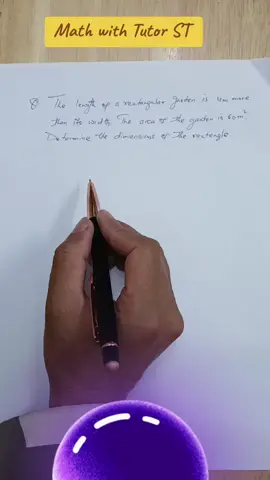 Math with Tutor ST
Q The length of a rectangular garden is 4m more
than its width. The area of the garden is 60m²
Determine the dimensions of the rectangle